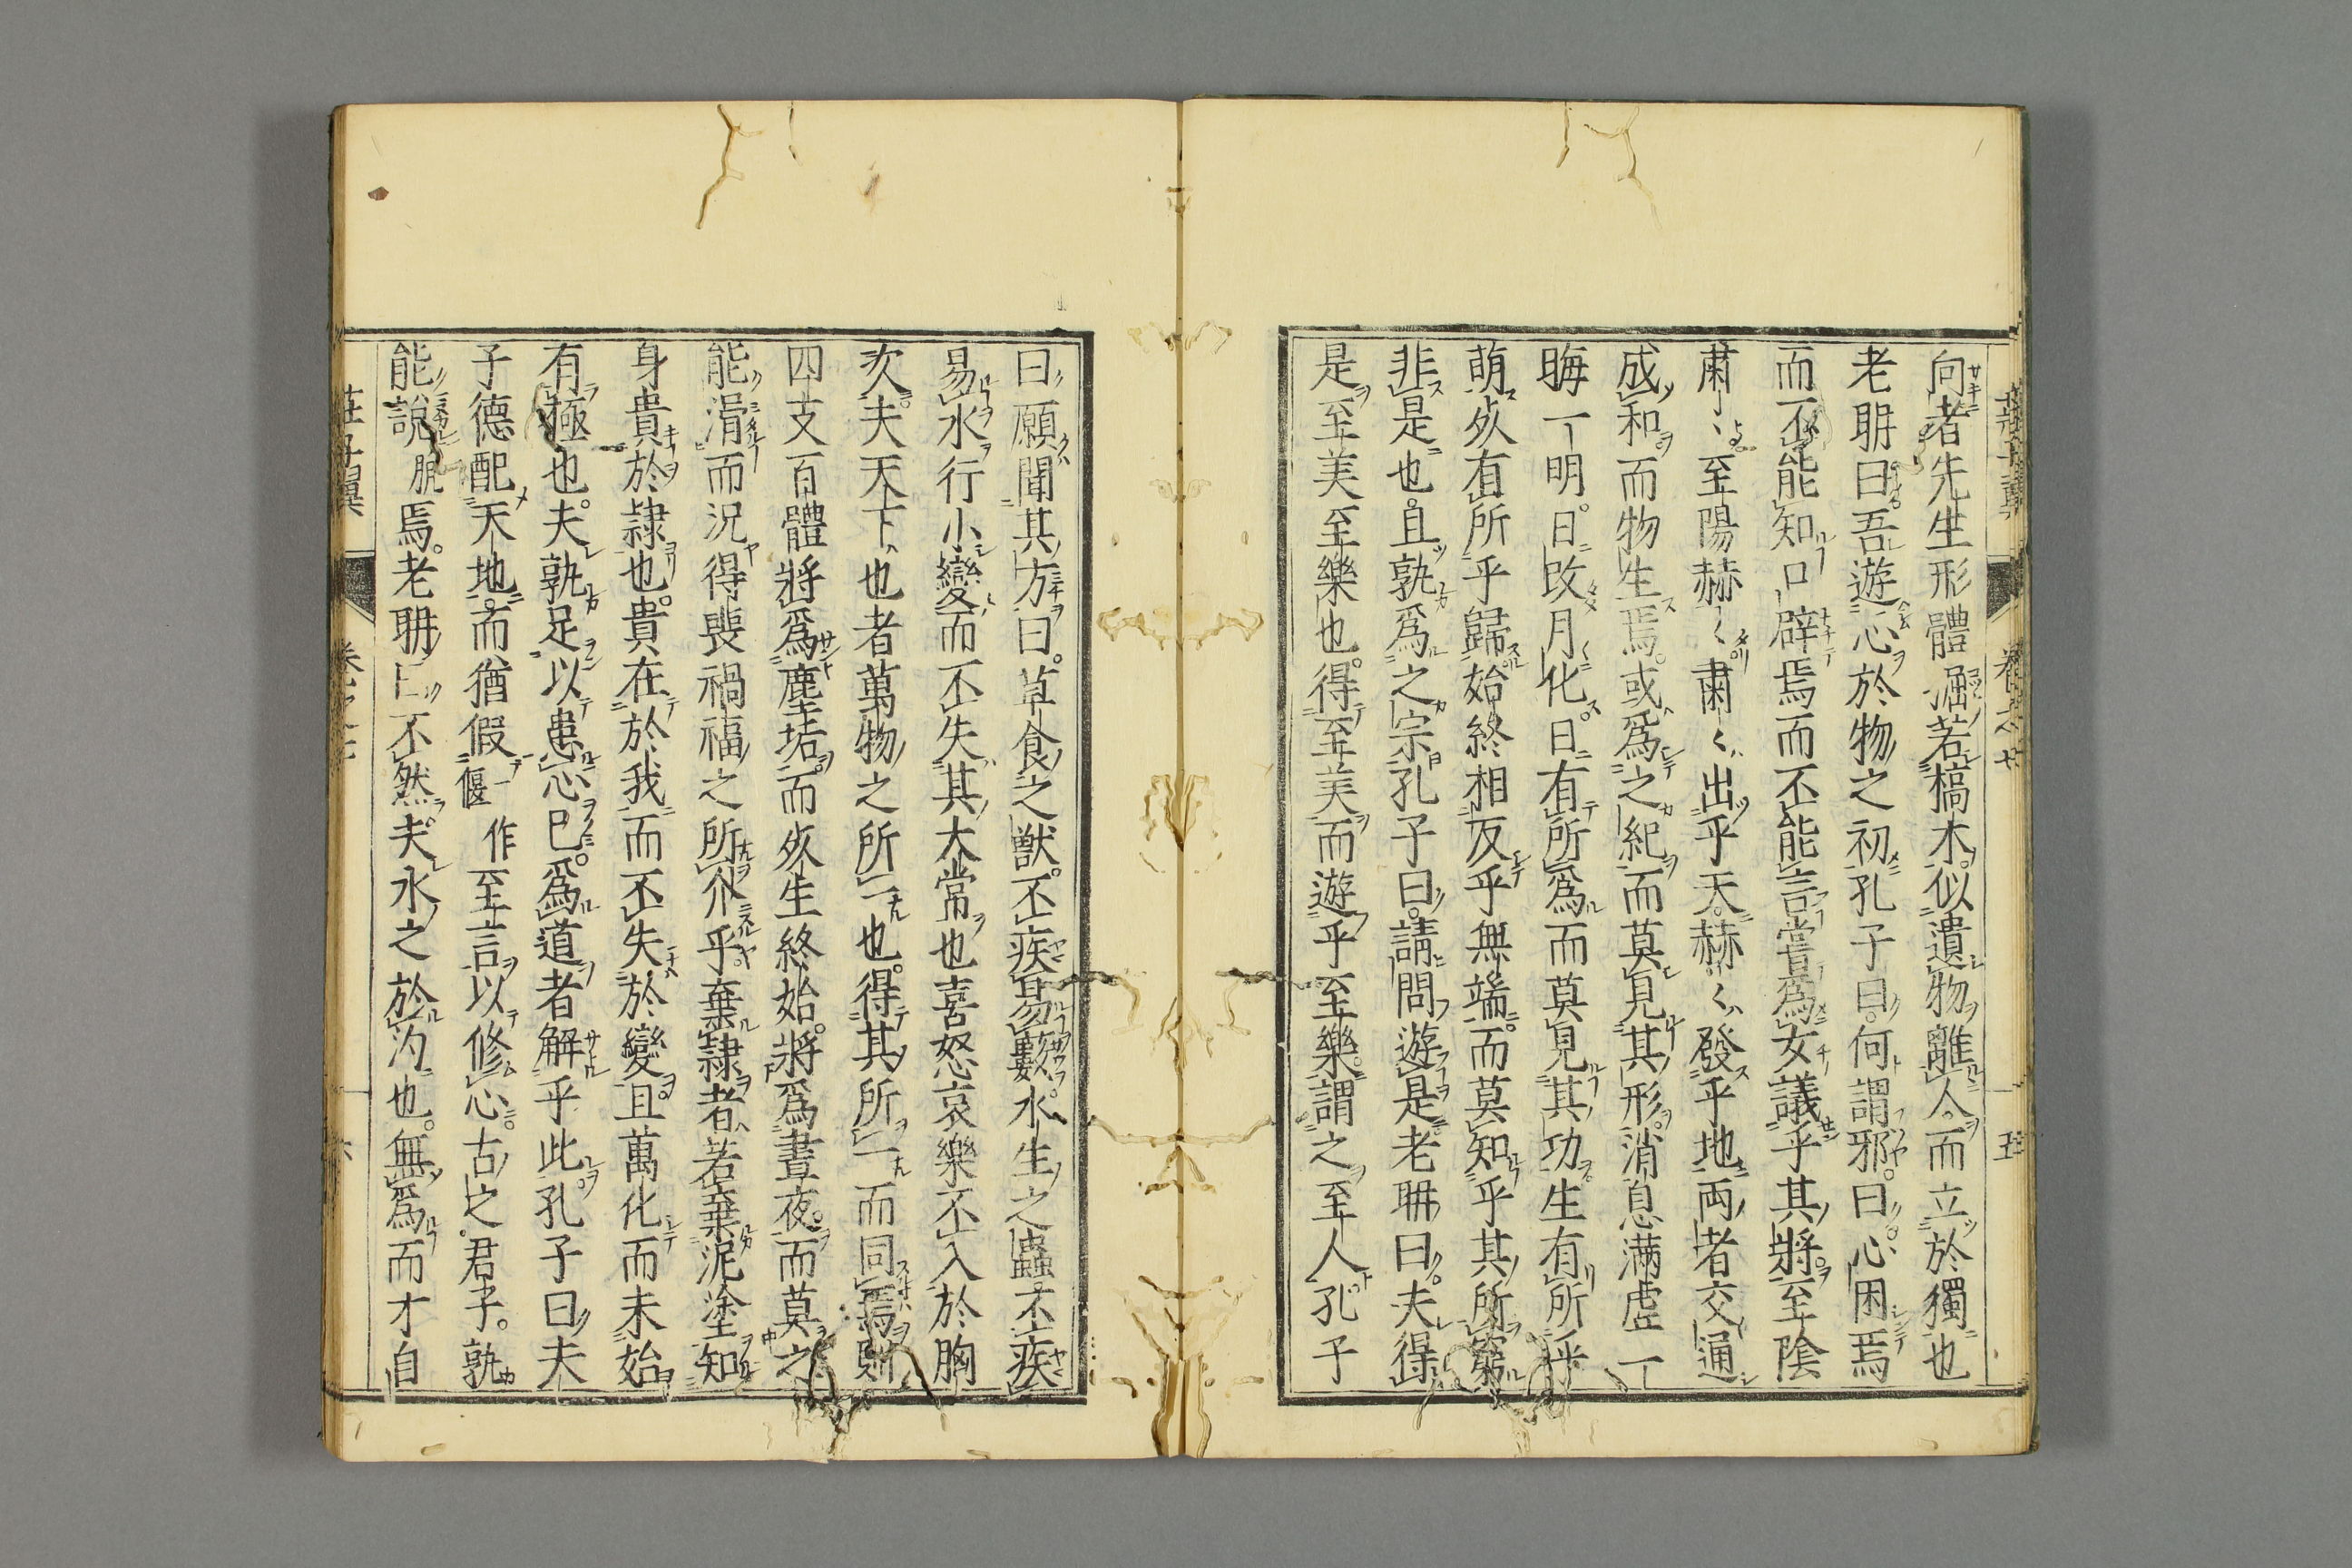 向者先生形體掘若槁木似遺物離人而立於獨也
老聃曰吾遊心於物之初孔子曰何謂邪曰心困焉
而不能知口辟焉而不能言嘗爲女議乎其將至陰
肅〻至陽赫〻肅〻出乎天赫〻發乎地兩者交通
成和而物生焉或爲之紀而莫見其形消息滿虛一
晦一明日改月化日有所爲而莫見其功生有所乎
萌死有所乎歸始終相反乎無端而莫知乎其所窮
非是也且孰爲之宗孔子曰請問遊是老聃曰夫得
是至美至樂也得至美而遊乎至樂謂之至人孔子
曰願聞其方曰草食之獸不疾易藪水生之蟲不疾
易水行小變而不失其大常也喜怒哀樂不入於胸
次夫天下也者萬物之所一也得其所一而同焉則
四支百體將爲塵垢而死生終始將爲晝夜而莫之
能滑而況得喪禍福之所介乎棄隸者若棄泥塗知
身貴於隸也貴在於我而不失於變且萬化而未始
有極也夫孰足以患心已爲道者解乎此孔子曰夫
子德配天地而猶假一作偃至言以修心古之君子孰
能說脫焉老聃曰不然夫水之於汋也無爲而才自